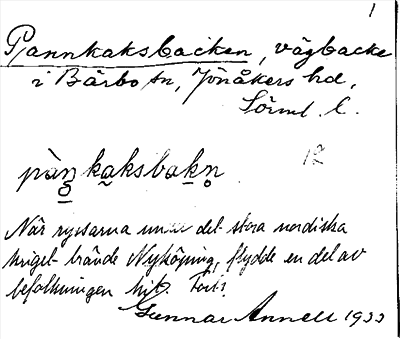 1
Pannkaksbacken, vägbacke
i Bärbo sn, Jönåkers hd,
Sörml. l.
pàn̠kaksbakn̥
12
När ryssarna under det stora nordiska
kriget brände Nyköping, flydde en del av
befolkningen hit. Forts.
Gunnar Annell 1933